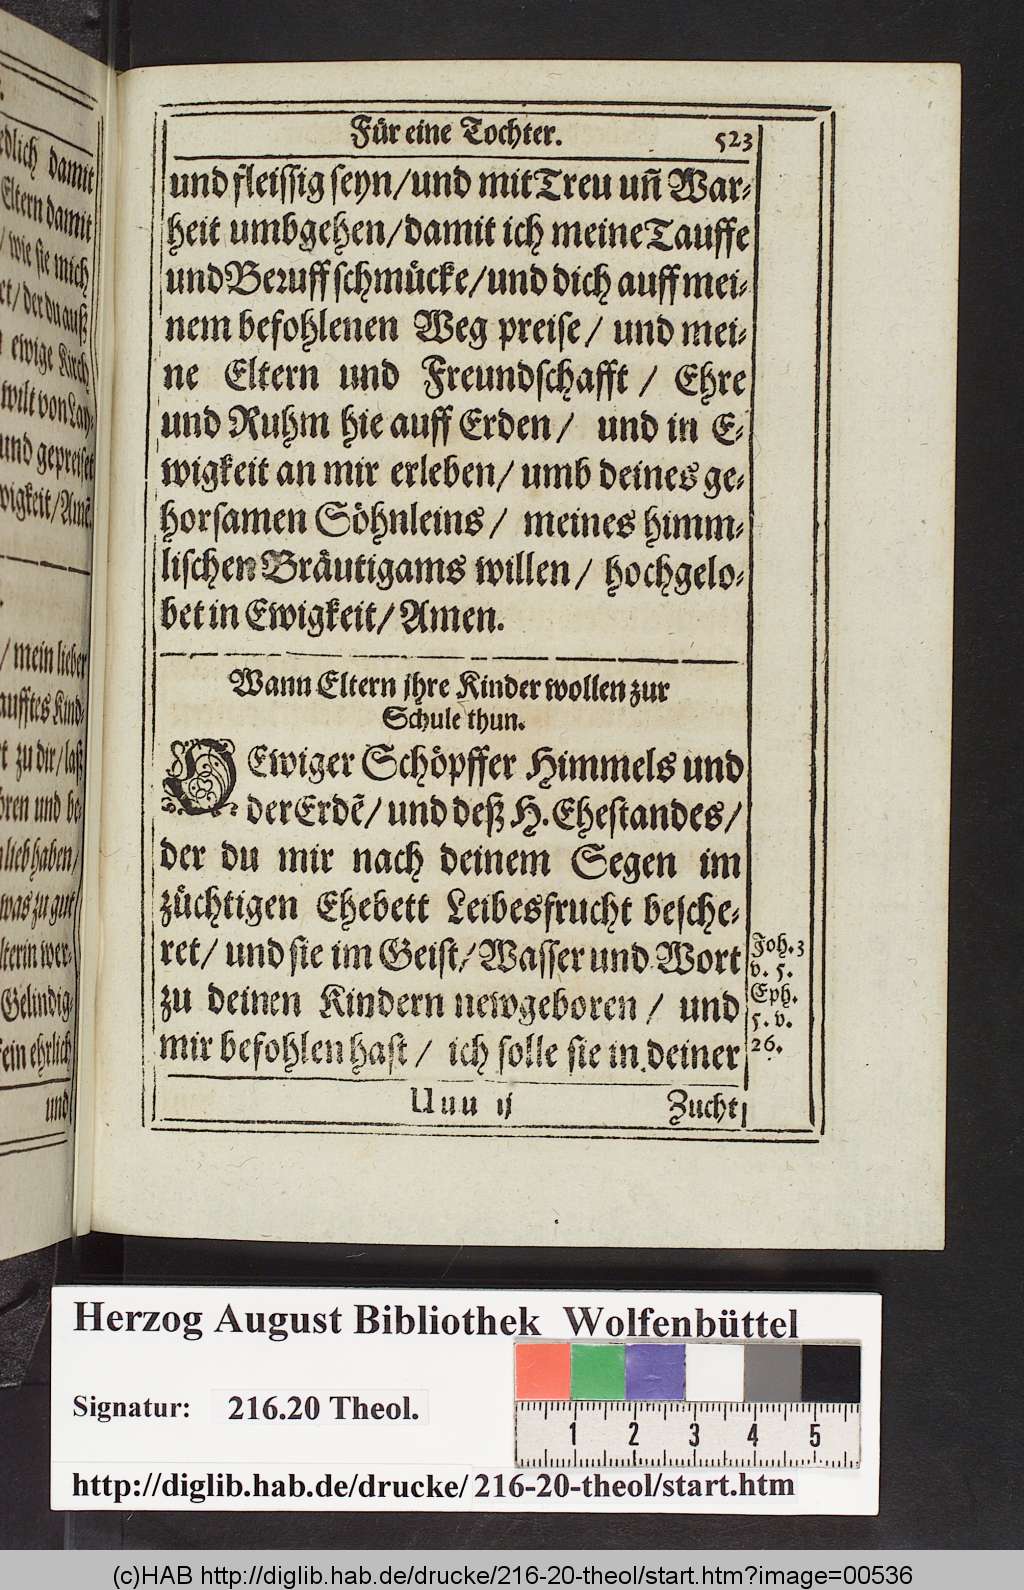 edlich damit
Eltern damit
/ wie sie mich
/ der du auß
ewige Kirch
wilt von
und gepreiset
wigkeit/Amẽ.
/ mein lieber
aufftes Kind-
zu dir/laß
ören und be-
lieb haben/
was zu gut
lterin wer-
Gelindig-
sein ehrlich
und
Für eine Tochter. 523
und fleissig seyn/und mit Treu uñ War-
heit umbgehen/damit ich meine Tauffe
und Beruff schmücke/und dich auff mei-
nem befohlenen Weg preise/ und mei-
ne Eltern und Freundschafft / Ehre
und Ruhm hie auff Erden/ und in E-
wigkeit an mir erleben/ umb deines ge-
horsamen Söhnleins/ meines himm-
lischen Bräutigams willen/ hochgelo-
bet in Ewigkeit/Amen.
Wann Eltern jhre Kinder wollen zur
Schule thun.
O Ewiger Schöpffer Himmels und
der Erdẽ/ und deß H. Ehestandes/
der du mir nach deinem Segen im
züchtigen Ehebett Leibesfrucht besche-
ret/ und sie im Geist/Wasser und Wort
zu deinen Kindern newgeboren/ und
mir befohlen hast/ ich solle sie in deiner
Joh. 3
v. 5.
Eph.
5. v.
26.
Uuu ij Zucht
Herzog August Bibliothek Wolfenbüttel
Signatur: 216.20 Theol.
1 2 3 4 5
http://diglib.hab.de/drucke/ 216-20-theol/start.htm
(c)HAB http://diglib.hab.de/drucke/216-20-theol/start.htm?image=00536